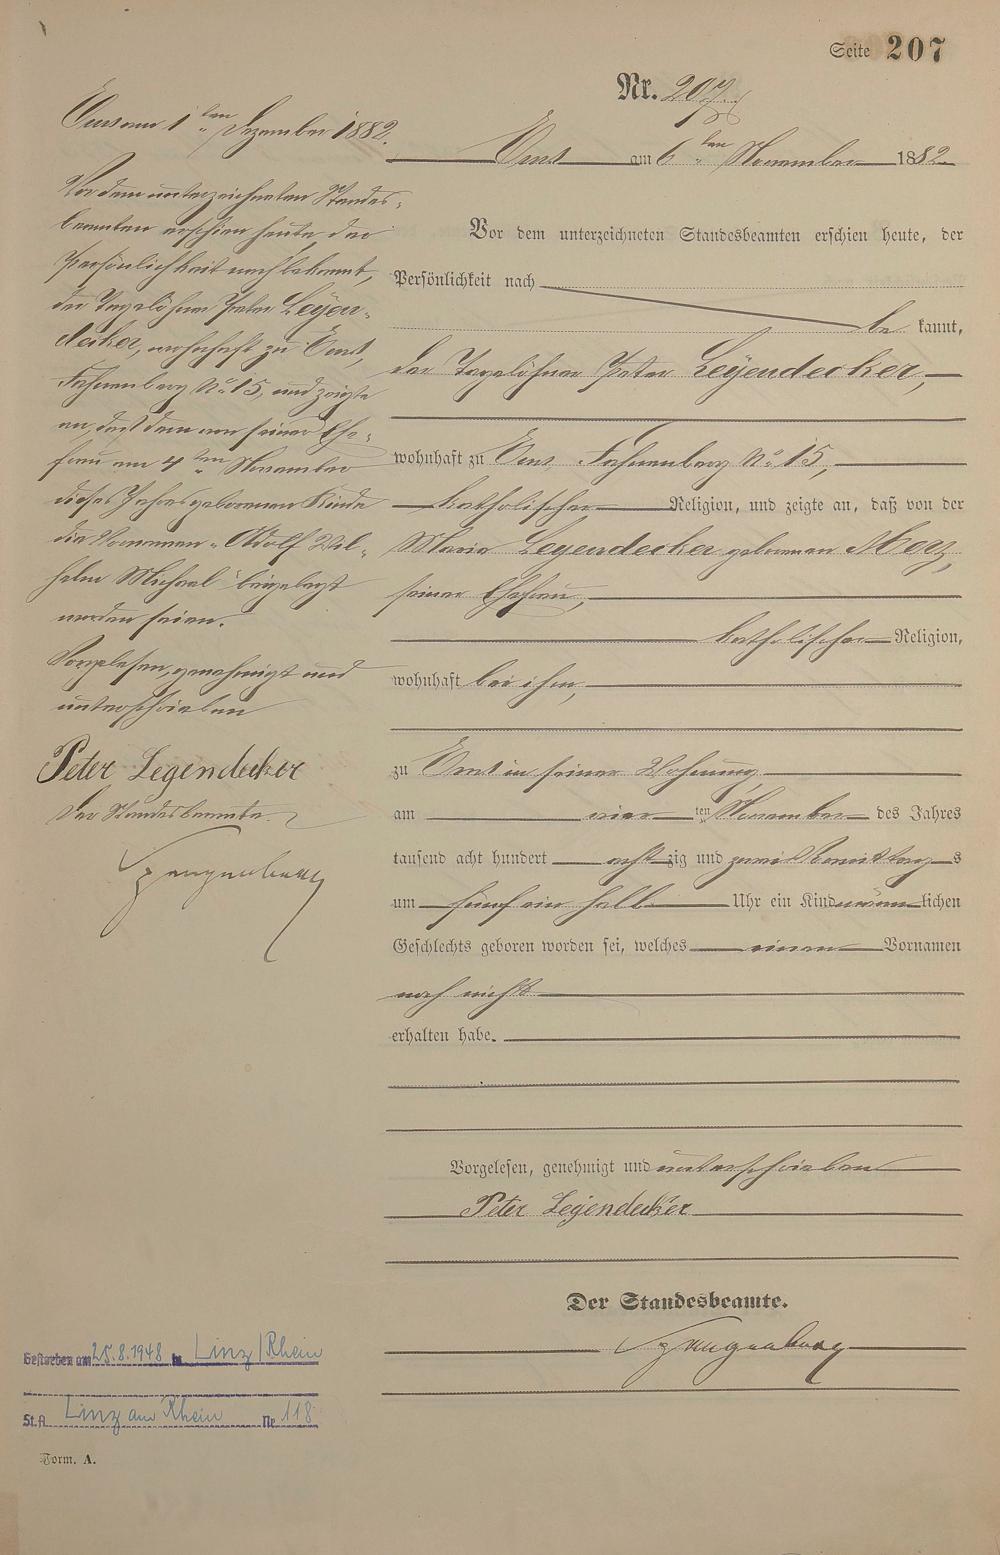 Seite 207
Nr. 207.
Ems am 6ten November 1882.
Vor dem unterzeichneten Standesbeamten erschien heute, der
Persönlichkeit nach
be kannt,
der Tagelöhner Peter Leÿendecker,
wohnhaft zu Ems, Fahnenberg No 15,
katholischer Religion, und zeigte an, daß von der
Maria Leyendecker geborenen Merz,
seiner Ehefrau,
katholischer Religion,
wohnhaft bei ihm,
zu Ems in seiner Wohnung
am vier ten November des Jahres
tausend acht hundert acht zig und zwei Vormittag s
um fünf ein halb Uhr ein Kind männ lichen
Geschlechts geboren worden sei, welches einen Vornamen
noch nicht
erhalten habe.
Vorgelesen, genehmigt und unterschrieben
Peter Leÿendecker
Der Standesbeamte.
Ems am 1ten Dezember 1882.
Vor dem unterzeichneten Standes-
beamten erschien heute, der
Persönlichkeit nach bekannt,
der Tagelöhner Peter Leÿen-
decker, wohnhaft zu Ems,
Fahnenberg No 15, und zeigte
an, daß dem von seiner Ehe-
frau am 4ten November
dieses Jahres geborenen Kinde
die Vornamen „Adolf Wil-
helm Michael" beigelegt
worden seien.
Vorgelesen, genehmigt und
unterschrieben
Peter Leÿendecker
Der Standesbeamte.
Gestorben am 25.8.1948 in Linz/Rhein
St.A. Linz am Rhein Nr 118
Form. A.